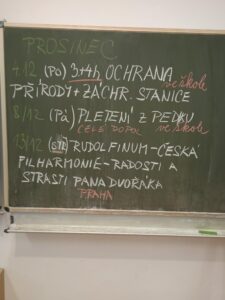 PROSINEC
4.12 (Po) 3+4h OCHRANA
ve škole
PŘÍRODY + ZÁCHR. STANICE
8/12 (Pá) PLETENÍ Z PEDKU
CELÉ DOPOL. ve škole
13/12 (STŘ) RUDOLFINUM - ČESKÁ
FILHARMONIE - RADOSTI A
STRASTI PANA DVOŘÁKA
PRAHA